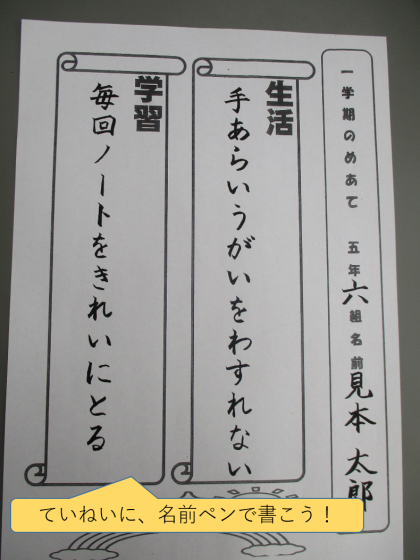 一学期のめあて 五年六組名前見本 太郎
生活
手あらいうがいをわすれない
学習
毎回ノートをきれいにとる
ていねいに、名前ペンで書こう！